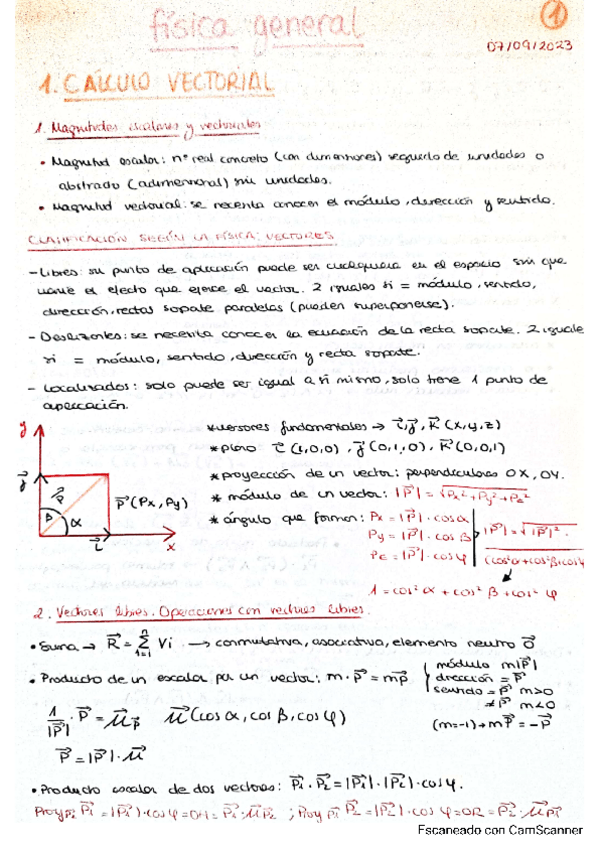 física general
1
07/09/2023
1. CÁLCULO VECTORIAL
1. Magnitudes escalares y vectoriales
• Magnitud escalar: nº real concreto (con dimensiones) seguido de unidades o
abstracto (adimensional) sin unidades.
• Magnitud vectorial: se necesita conocer el módulo, dirección y sentido.
CLASIFICACIÓN SEGÚN LA FÍSICA: VECTORES
- Libres: su punto de aplicación puede ser cualquiera en el espacio sin que
varíe el efecto que ejerce el vector. 2 iguales si = módulo, sentido,
dirección, rectas soporte paralelas (pueden superponerse).
- Deslizantes: se necesita conocer la ecuación de la recta soporte. 2 iguale
si = módulo, sentido, dirección y recta soporte.
- Localizados: solo puede ser igual a si mismo, solo tiene 1 punto de
aplicación.
y
j⃗
P⃗
β α
i⃗ x
P⃗ (Px, Py)
* versores fundamentales → i⃗, j⃗, K⃗ (x, y, z)
* plano i⃗ (1,0,0), j⃗ (0,1,0), K⃗ (0,0,1)
* proyección de un vector: perpendiculares OX, OY.
* módulo de un vector: |P⃗| = √Px² + Py² + Pz²
* ángulo que forman: Px = |P⃗| · cos α
Py = |P⃗| · cos β
Pz = |P⃗| · cos φ
|P⃗| = √|P⃗|² ·
(cos²α + cos²β + cos²φ
1 = cos² α + cos² β + cos² φ
2. Vectores libres. Operaciones con vectores libres.
• Suma → R⃗ = Σ Vi → conmutativa, asociativa, elemento neutro 0⃗
• Producto de un escalar por un vector: m · P⃗ = mP⃗
módulo m|P|
dirección = P⃗
sentido = P⃗ m>0
≠ P⃗ m<0
(m=-1) → mP⃗ = -P⃗
1/|P⃗| · P⃗ = μ⃗p μ⃗ (cos α, cos β, cos φ)
P⃗ = |P⃗| · μ⃗
• Producto escalar de dos vectores: P⃗1 · P⃗2 = |P⃗1| · |P⃗2| · cos φ.
Proy P⃗2 P⃗1 = |P⃗1| · cos φ = OH = P⃗1 · μ⃗P2 ; Proy P⃗1 P⃗2 = |P⃗2| · cos φ = OR = P⃗2 · μ⃗P1
Escaneado con CamScanner